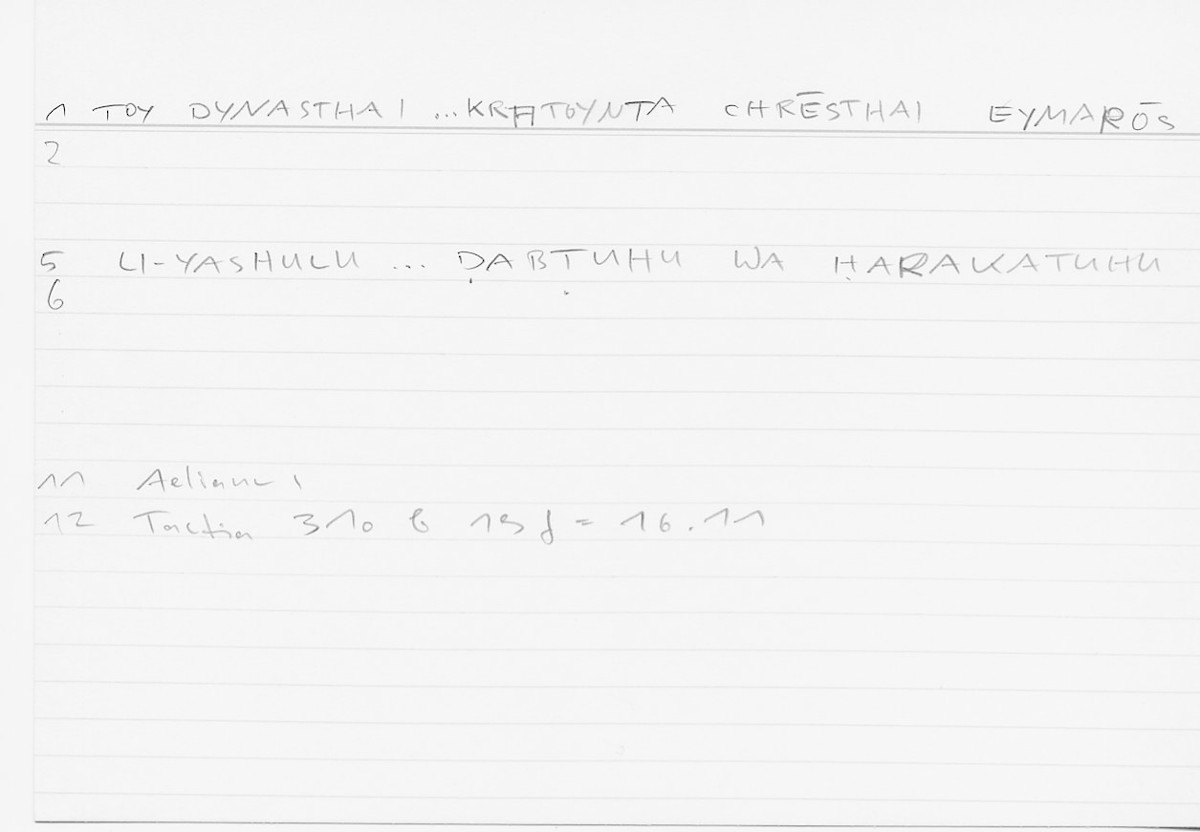 1 TOY DYNASTHAI ...KRATOYNTA CHRĒSTHAI EYMARŌS
2
5 LI-YASHULU ... ḌABṬUHU WA ḤARAKATUHU
6
11 Aelianus
12 Tactica 310 b 19 f = 16.11